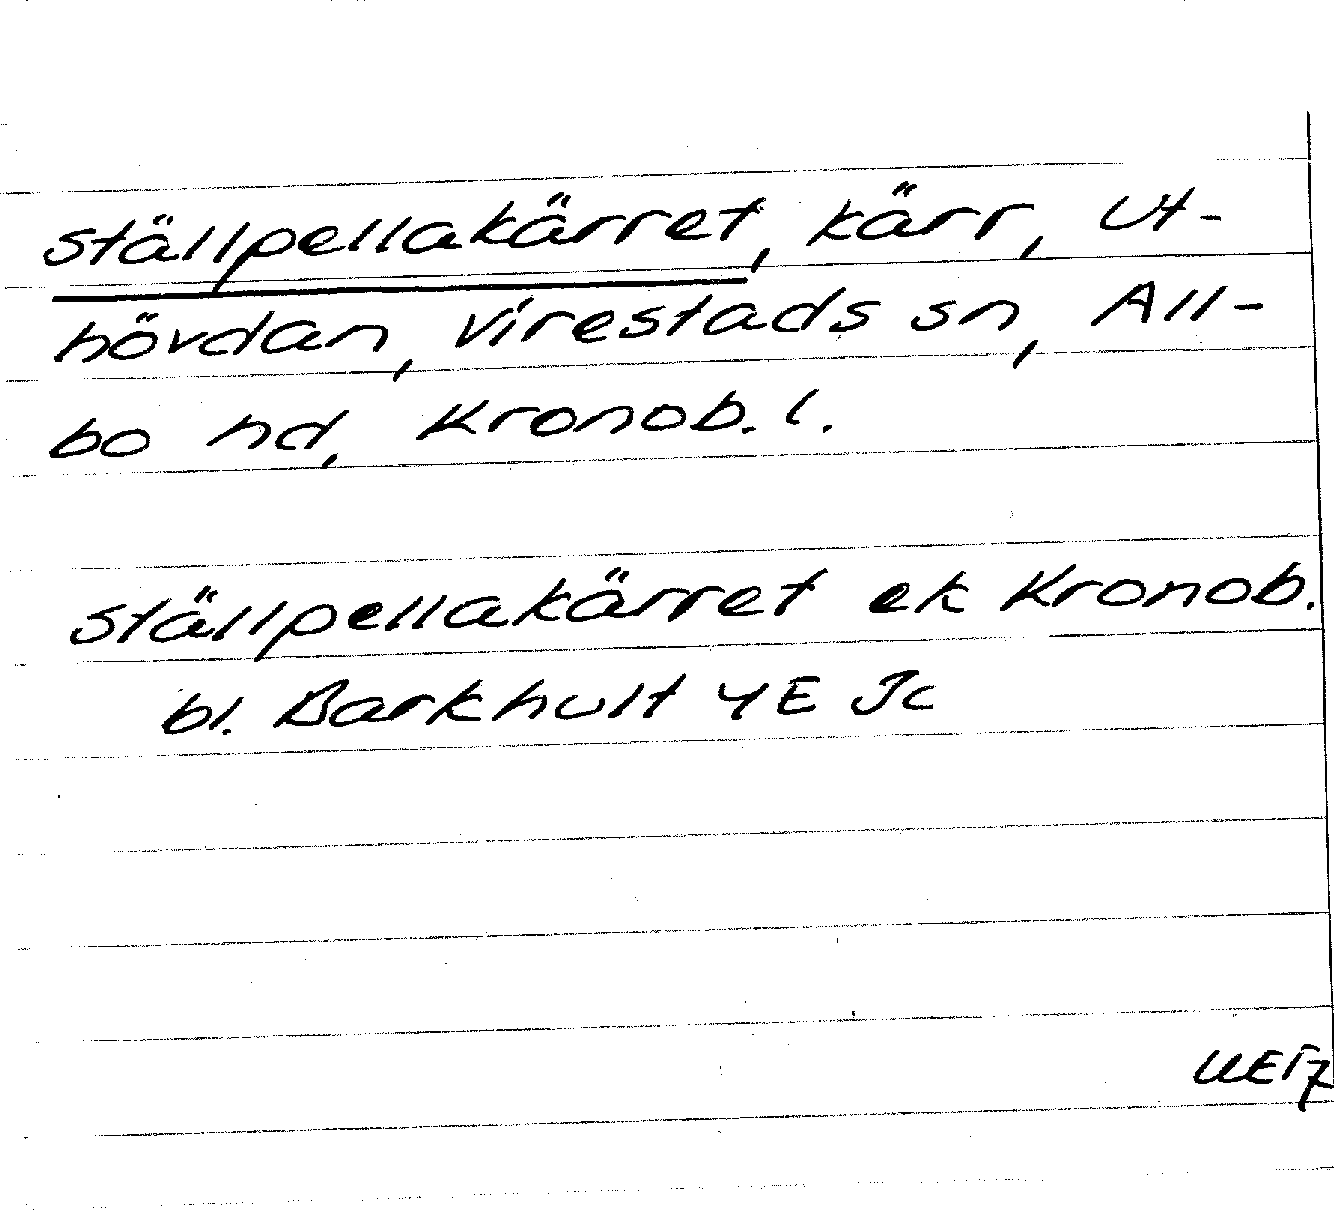 ställpellakärret, kärr, Ut-
hövdan, Virestads sn, All-
bo hd, Kronob. l.
ställpellakärret ek Kronob.
bl. Barkhult 4E Jc